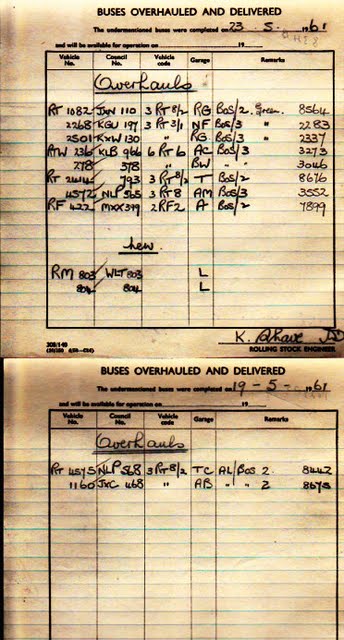 BUSES OVERHAULED AND DELIVERED
The undermentioned buses were completed on 23 - 5 - 1961
and will be available for operation on 19
Vehicle No. Council No. Vehicle code Garage Remarks
Overhauls
RT 1082 JXN 110 3 RT 8/2 RG BOS/2 Green. 8564
2268 KGU 197 3 RT 3/1 NF BOS/3 " 2283
2501 KXW 130 RG BOS/3 " 2337
RTW 236 KLB 966 6 RT 6 AC BOS/3 3273
278 378 " " BW " " 3046
RT 2444 793 3 RT 8/2 T BOS/2 8676
4572 NLP 565 3 RT 8 AM BOS/3 3552
RF 422 MXX 399 2 RF 2 A BOS/2 7899
New.
RM 803 WLT 803 L
804 804 L
K. Shave
308/140
ROLLING STOCK ENGINEER
BUSES OVERHAULED AND DELIVERED
The undermentioned buses were completed on 19 - 5 - 1961
and will be available for operation on 19
Vehicle No. Council No. Vehicle code Garage Remarks
Overhauls
RT 4575 NLP 568 3 RT 8/2 TC AL/BOS 2. 8442
1160 JXC 468 " AB " " 2 8675